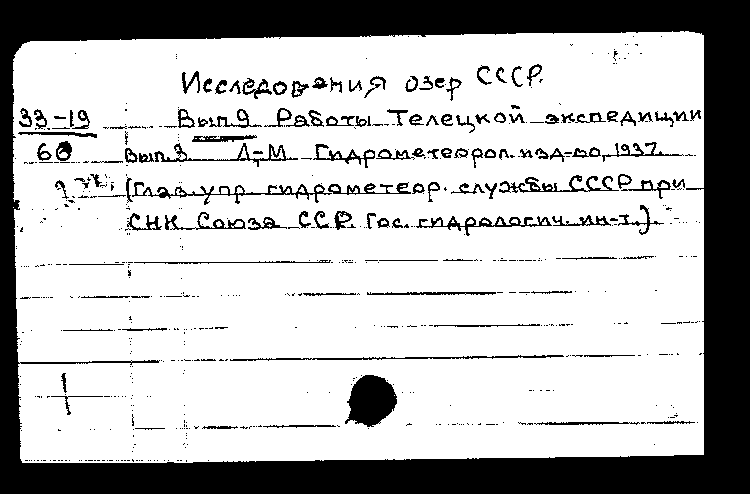 Исследования озер СССР.
33-19 Вып.9. Работы Телецкой экспедиции
60 Вып.3. Л.-М. Гидрометеорол. изд-во, 1937.
(Глав. упр. гидрометеор. службы СССР при
СНК Союза ССР. Гос. гидрологич. ин-т.).